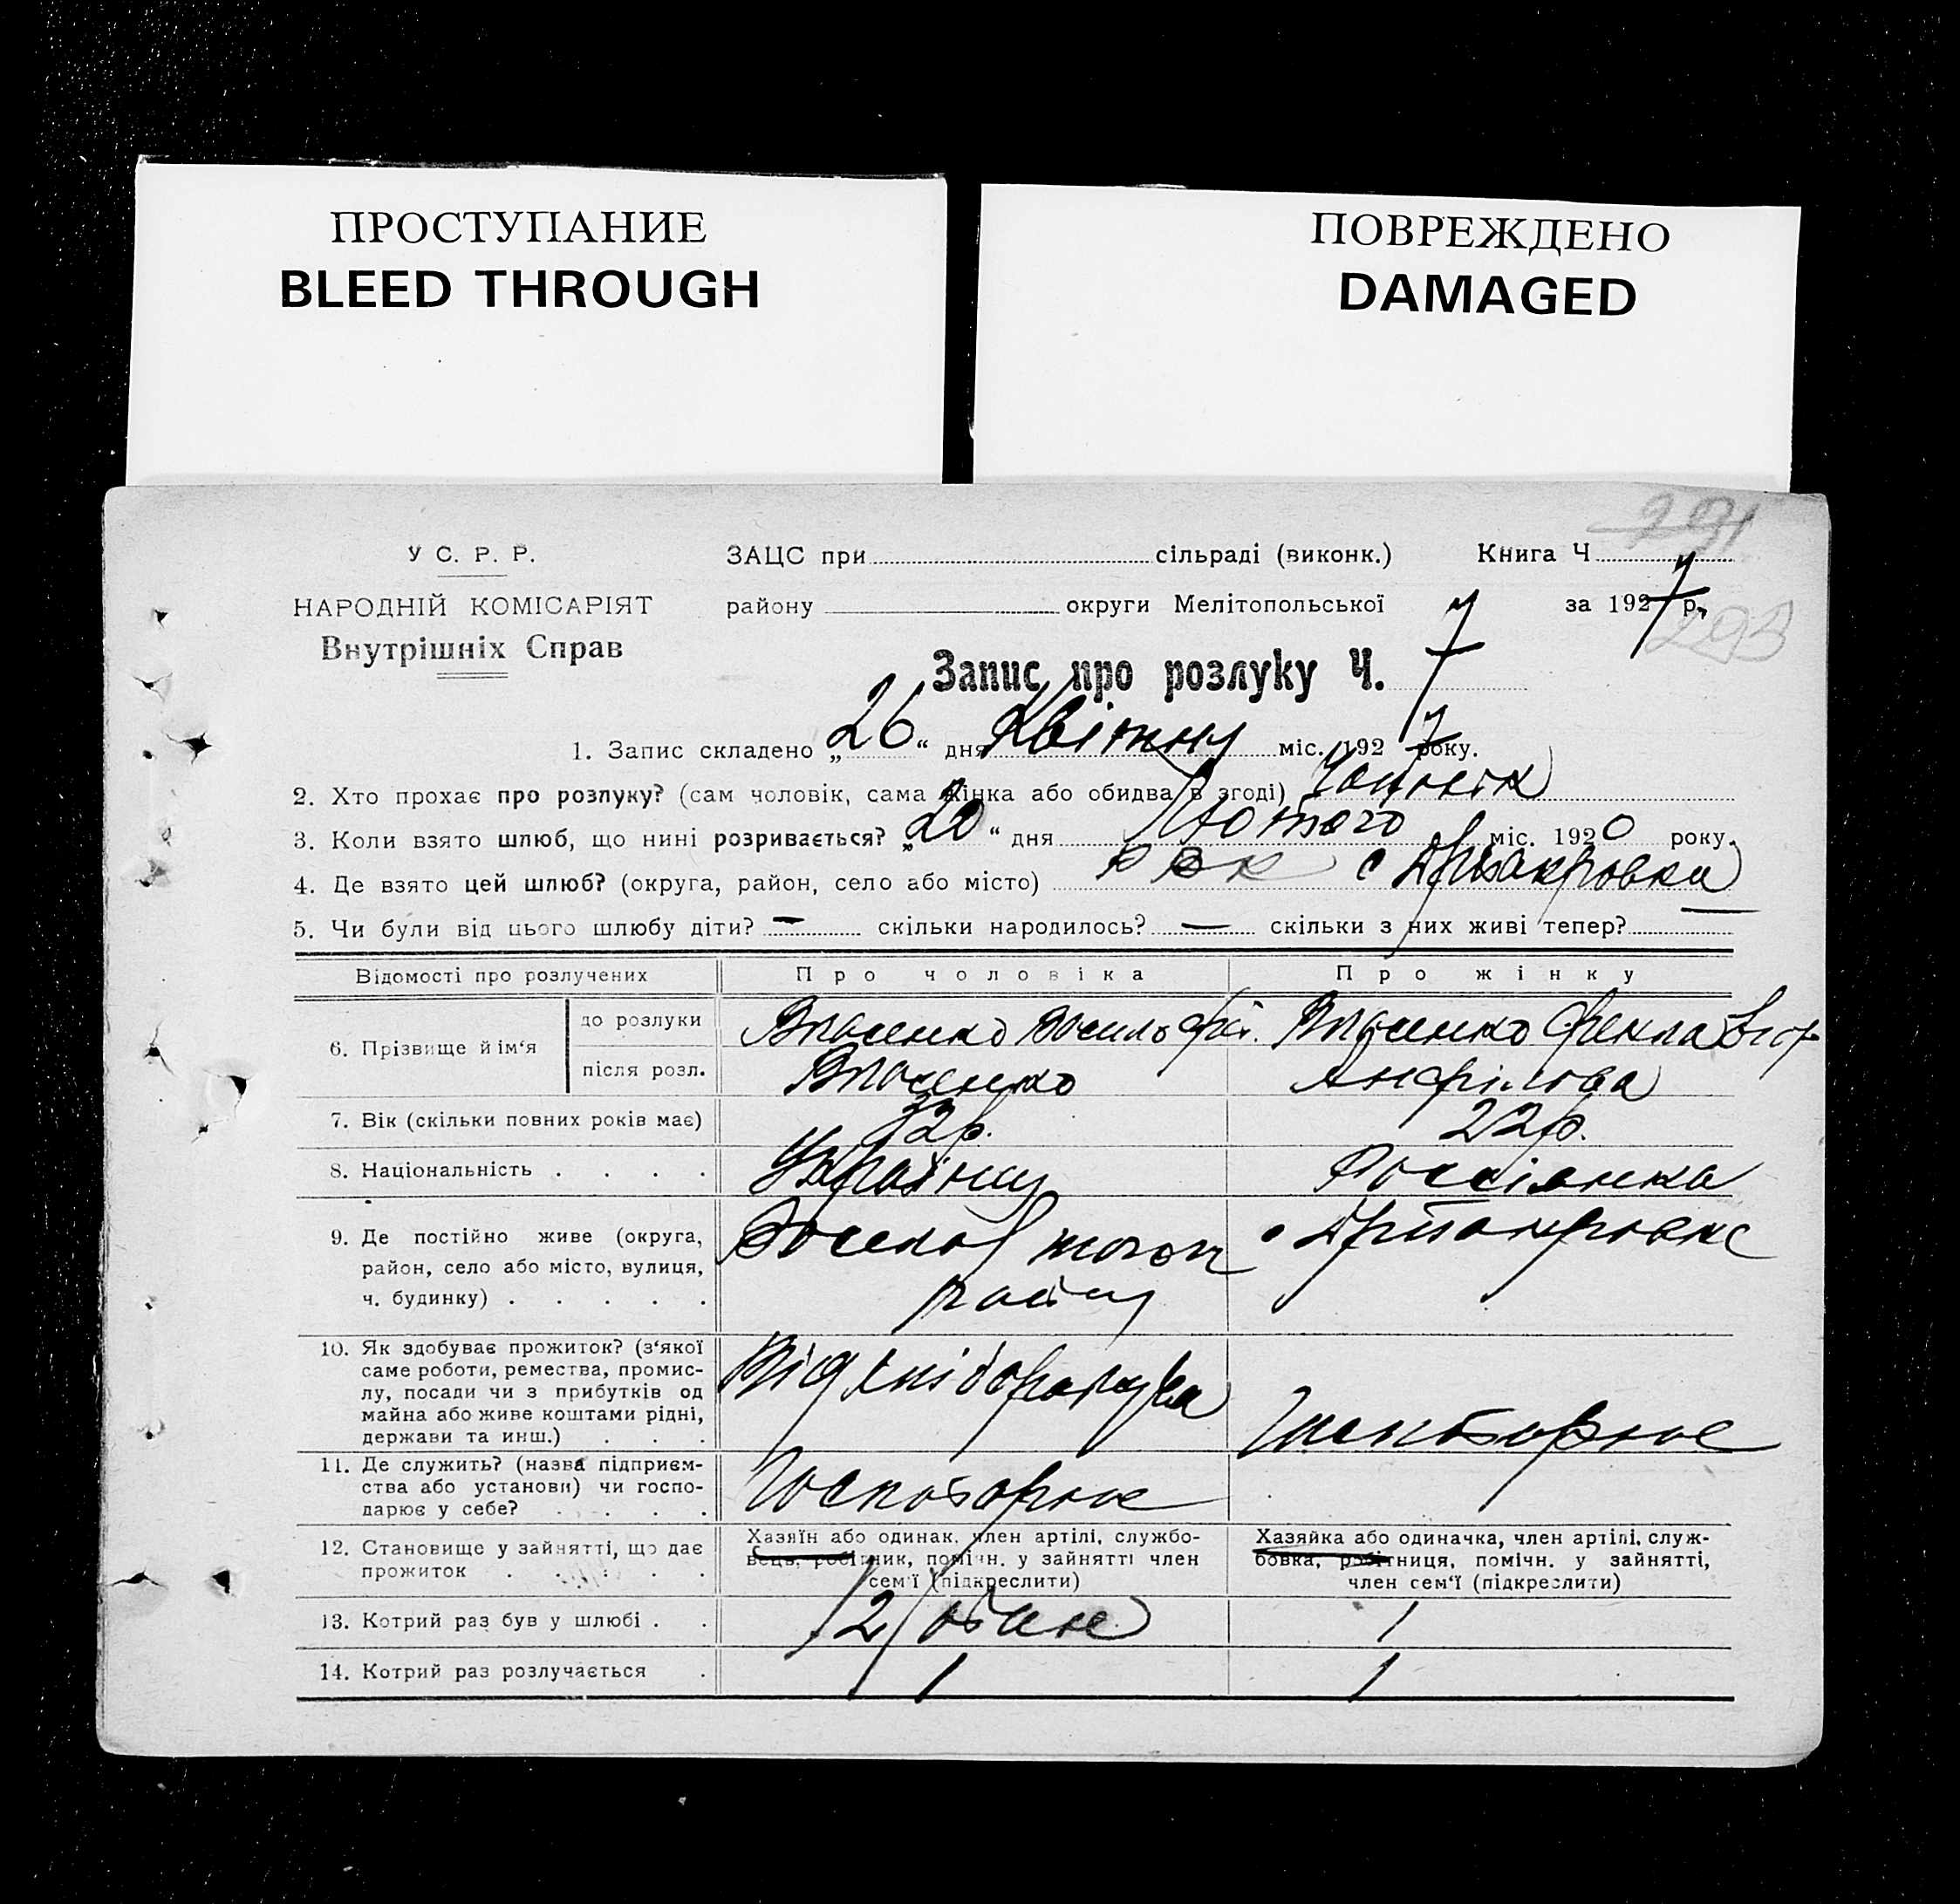 ПРОСТУПАНИЕ
BLEED THROUGH
ПОВРЕЖДЕНО
DAMAGED
291
У С. Р. Р.
НАРОДНІЙ КОМІСАРІЯТ
Внутрішніх Справ
ЗАЦС при сільраді (виконк.) Книга Ч
району округи Мелітопольської за 1927 р.
293
Запис про розлуку Ч. 7
1. Запис складено „26“ дня Квітня міс. 1927 року.
2. Хто прохає про розлуку? (сам чоловік, сама жінка або обидва в згоді) Чоловік
3. Коли взято шлюб, що нині розривається? „20“ дня Лютого міс. 1920 року.
4. Де взято цей шлюб? (округа, район, село або місто) с
5. Чи були від цього шлюбу діти? — скільки народилось? — скільки з них живі тепер? —
Відомості про розлучених
Про чоловіка
Про жінку
6. Прізвище й ім‘я
до розлуки
Власенко Василь
Власенко Фекла
після розл.
Власенко
Анфілова
7. Вік (скільки повних років має)
32р.
22р.
8. Національність . . . .
Українец
Россіянка
9. Де постійно живе (округа,
район, село або місто, вулиця,
ч. будинку) . . . . .
району
10. Як здобуває прожиток? (з‘якої
саме роботи, ремества, промис-
лу, посади чи з прибутків од
майна або живе коштами рідні,
держави та инш.) . . .
Від хліборобства
11. Де служить? (назва підприєм-
ства або установи) чи госпо-
дарює у себе? . . . .
12. Становище у зайнятті, що дає
прожиток . . . . .
Хазяїн або одинак, член артілі, службо-
вець, робітник, помічн. у зайнятті член
сем‘ї (підкреслити)
Хазяйка або одиначка, член артілі, служ-
бовка, робітниця, помічн. у зайнятті,
член сем‘ї (підкреслити)
13. Котрий раз був у шлюбі . .
2
1
14. Котрий раз розлучається .
1
1